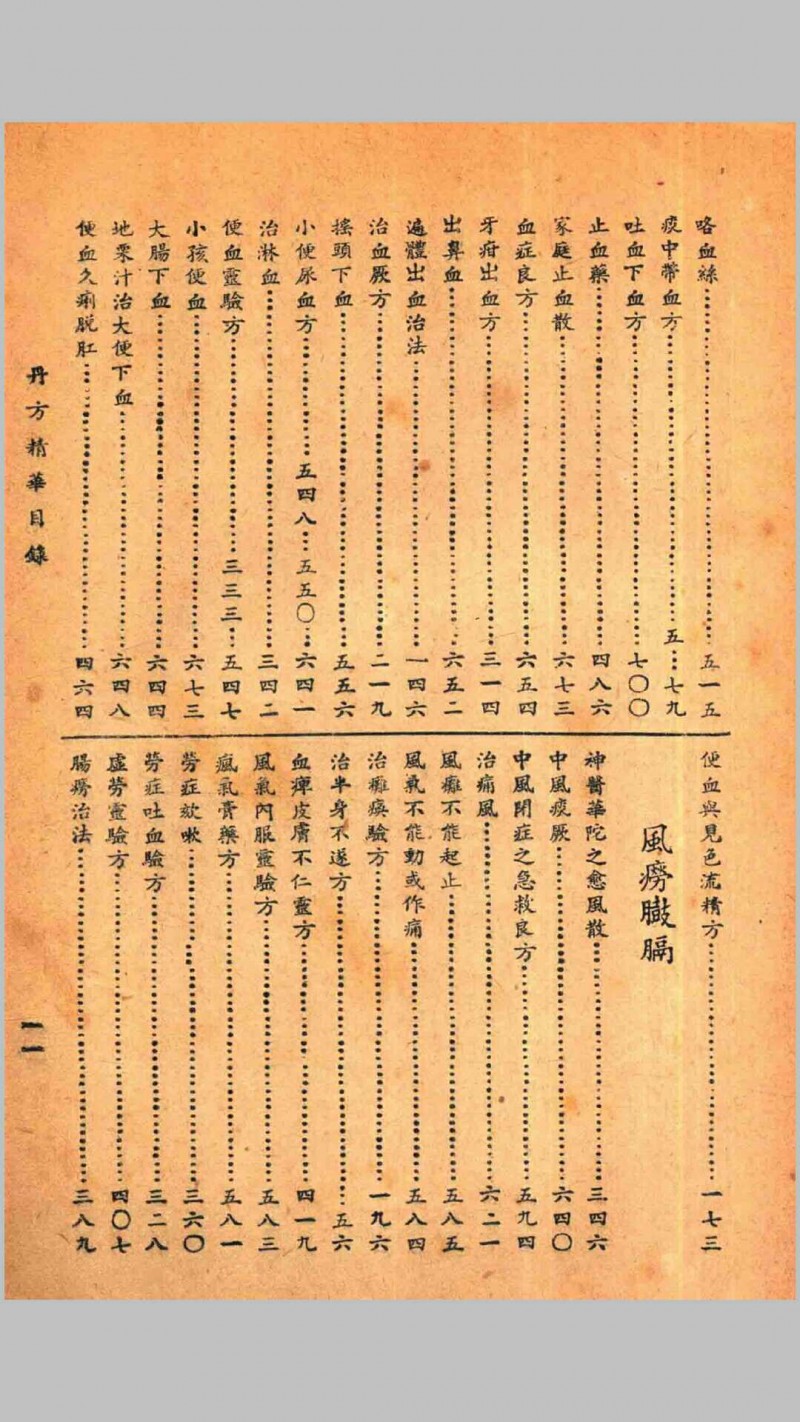 咯血絲……五一五
痰中帶血方……五…七九
吐血下血方……七〇〇
止血藥……四八六
家庭止血散……六七三
血症良方……六五四
牙疳出血方……三一四
出鼻血……六五二
遍體出血治法……一四六
治血厥方……二一九
搖頭下血……五五六
小便尿血方……五四八…五五〇…六四一
治淋血……三四二
便血靈驗方……三三三…五四七
小孩便血……六七三
大腸下血……六四四
地栗汁治大便下血……六四八
便血久痢脫肛……四六四
便血與見色流精方……一七三
風癆臌膈
神醫華陀之愈風散……三四六
中風痰厥……六四〇
中風閉症之急救良方……五九四
治痛風……六二一
風癱不能起止……五八五
風氣不能動或作痛……五八四
治癱瘓驗方……一九六
治半身不遂方……五六
血痺皮膚不仁靈方……四一九
風氣內服靈驗方……五八三
瘋氣膏藥方……五八一
勞症欬嗽……三六〇
勞症吐血驗方……三二八
虛勞靈驗方……四〇七
腸癆治法……三八九
丹方精華目錄
一一